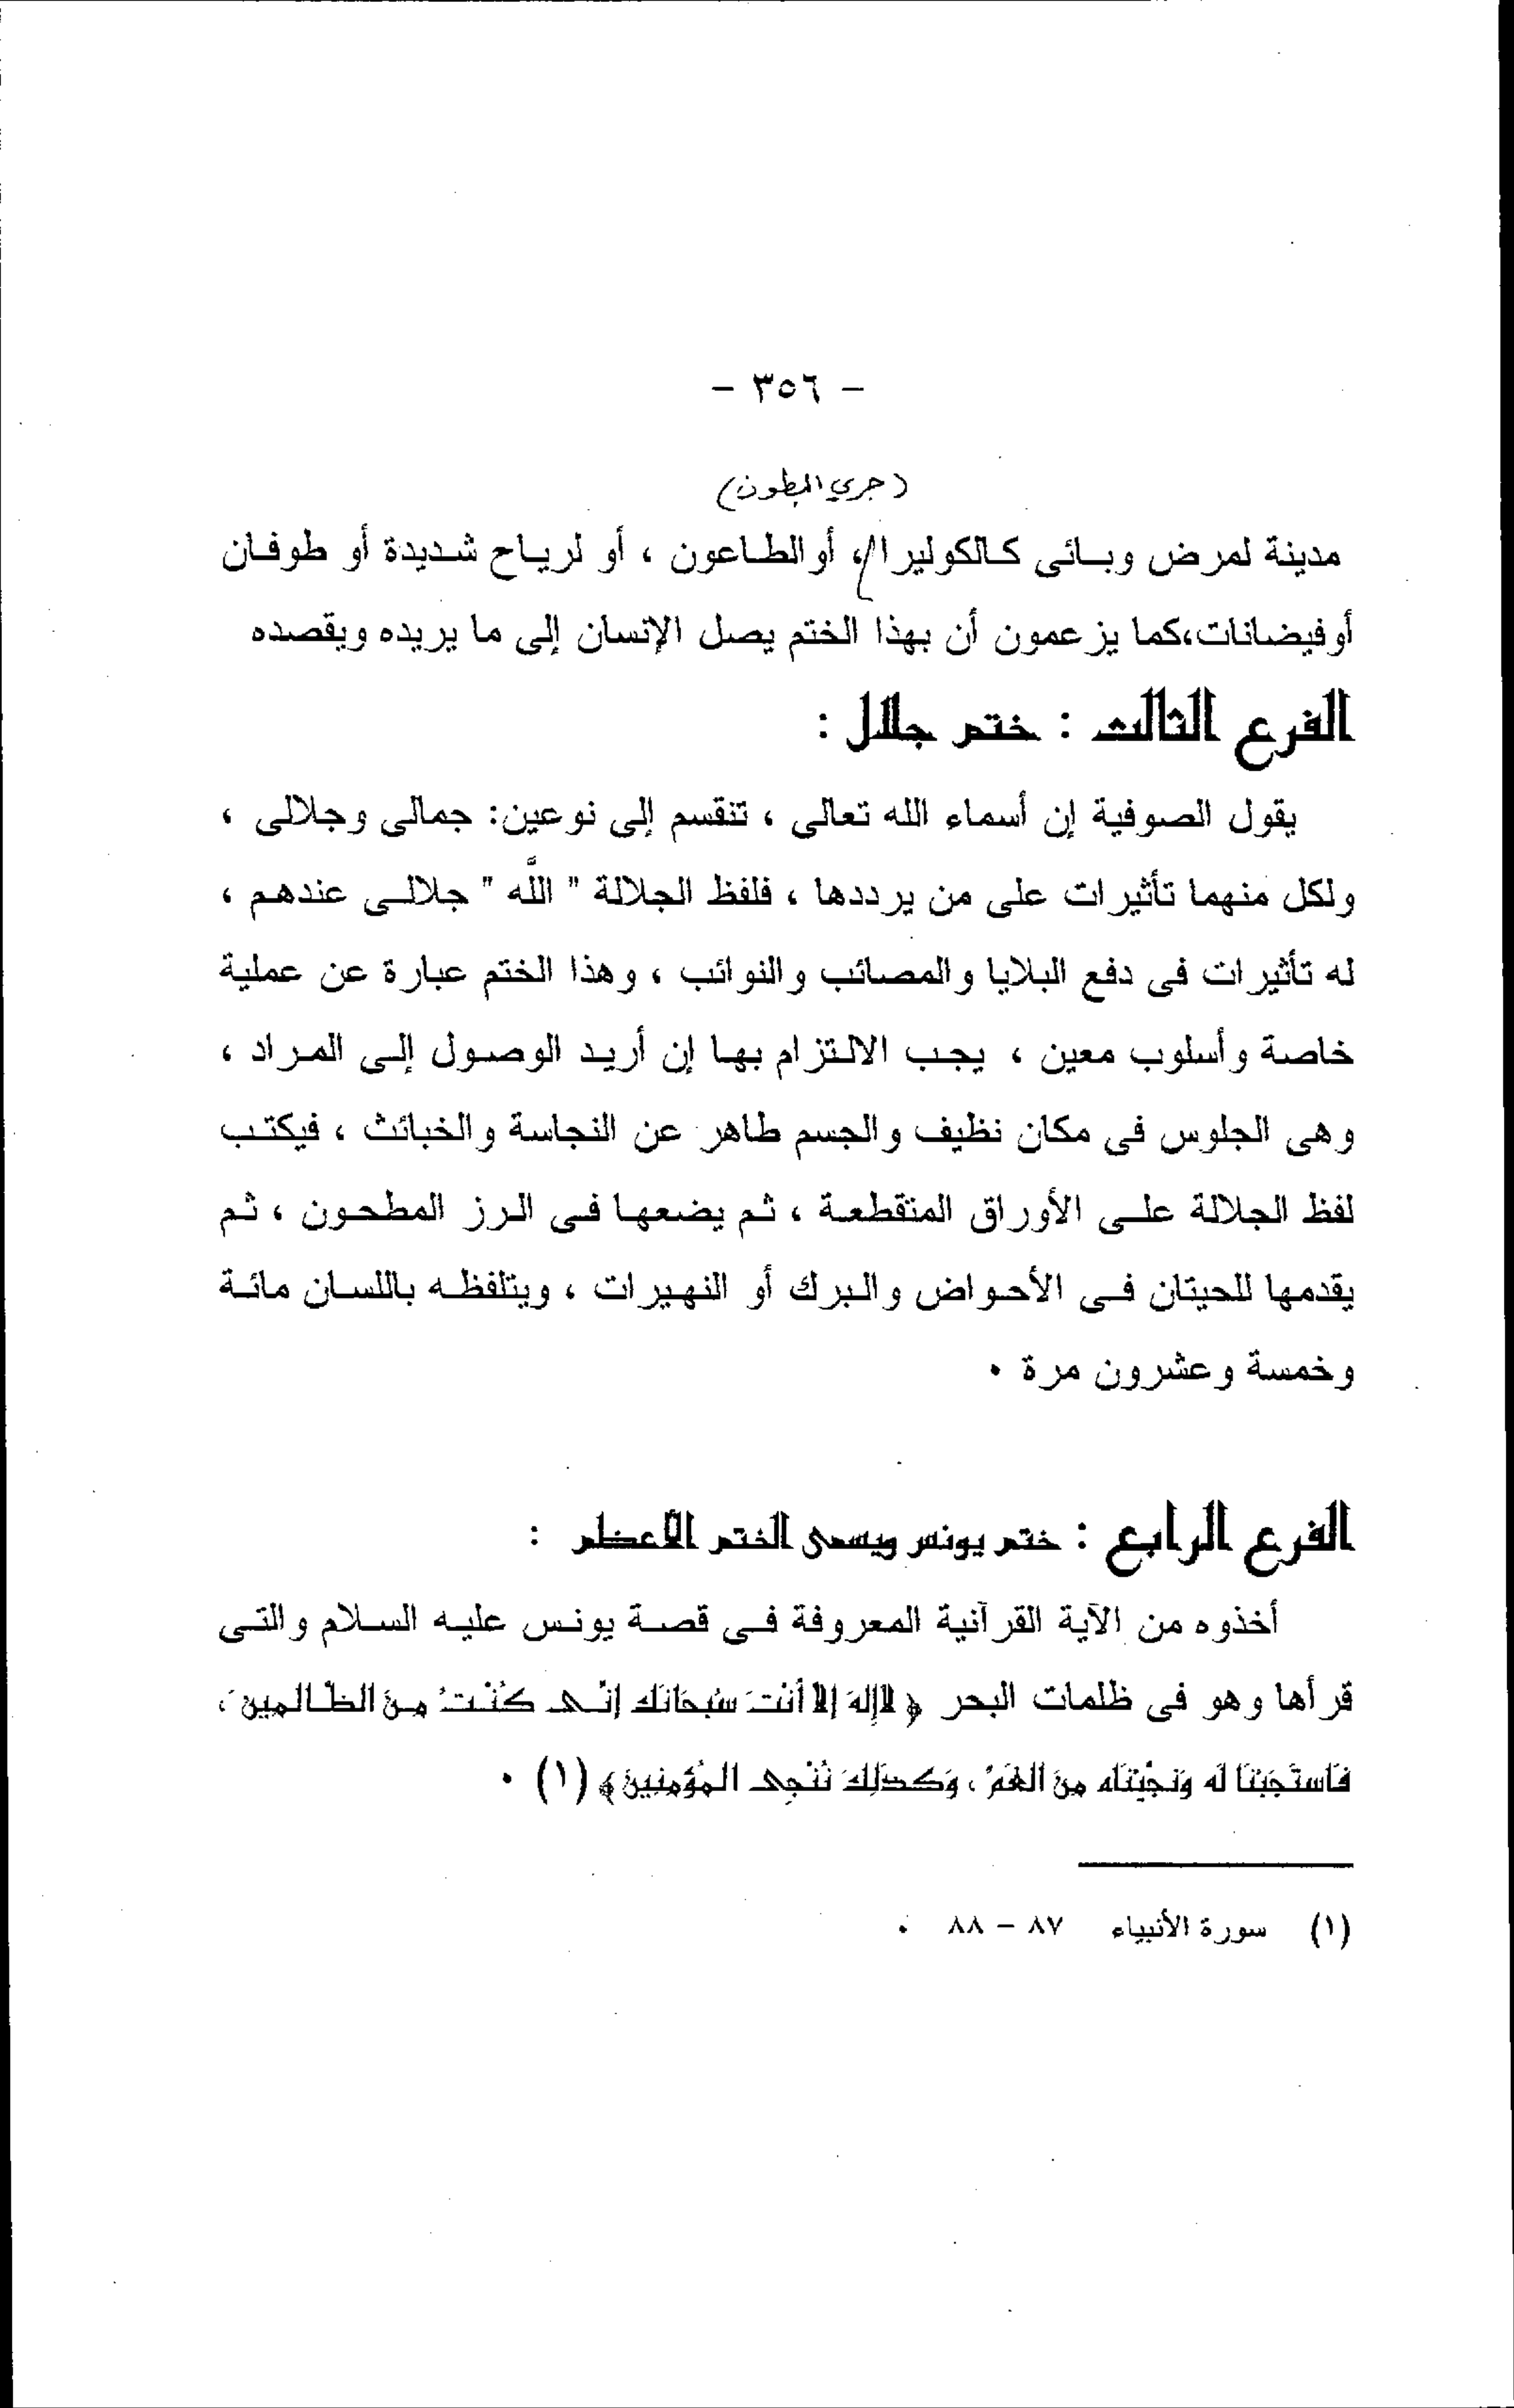 - ٣٥٦ -
(جري البطون)
مدينة لمرض وبائى كالكوليرا، أوالطاعون ، أو لرياح شديدة أو طوفان
أوفيضانات،كما يزعمون أن بهذا الختم يصل الإنسان إلى ما يريده ويقصده
الفرع الثالث : ختم جلال :
يقول الصوفية إن أسماء الله تعالى ، تنقسم إلى نوعين: جمالى وجلالى ،
ولكل منهما تأثيرات على من يرددها ، فلفظ الجلالة " اللَّه " جلالى عندهم ،
له تأثيرات فى دفع البلايا والمصائب والنوائب ، وهذا الختم عبارة عن عملية
خاصة وأسلوب معين ، يجب الالتزام بها إن أريد الوصول إلى المراد ،
وهى الجلوس فى مكان نظيف والجسم طاهر عن النجاسة والخبائث ، فيكتب
لفظ الجلالة على الأوراق المتقطعة ، ثم يضعها فى الرز المطحون ، ثم
يقدمها للحيتان فى الأحواض والبرك أو النهيرات ، ويتلفظه باللسان مائة
وخمسة وعشرون مرة ٠
الفرع الرابع : ختم يونس ويسمى الختم الأعظم :
أخذوه من الآية القرآنية المعروفة فى قصة يونس عليه السلام والتى
قرأها وهو فى ظلمات البحر ﴿ لاإِلهَ إلا أنْتَ سُبحَانَك إنّى كُنْتُ مِنَ الظّالمِينَ ،
فَاستَجَبْنَا لَه وَنَجَّيْنَاه مِنَ الغَمِّ ، وَكَذلِكَ نُنْجِى المُؤمِنِينَ ﴾ (١) ٠
(١) سورة الأنبياء ٨٧ - ٨٨ ٠